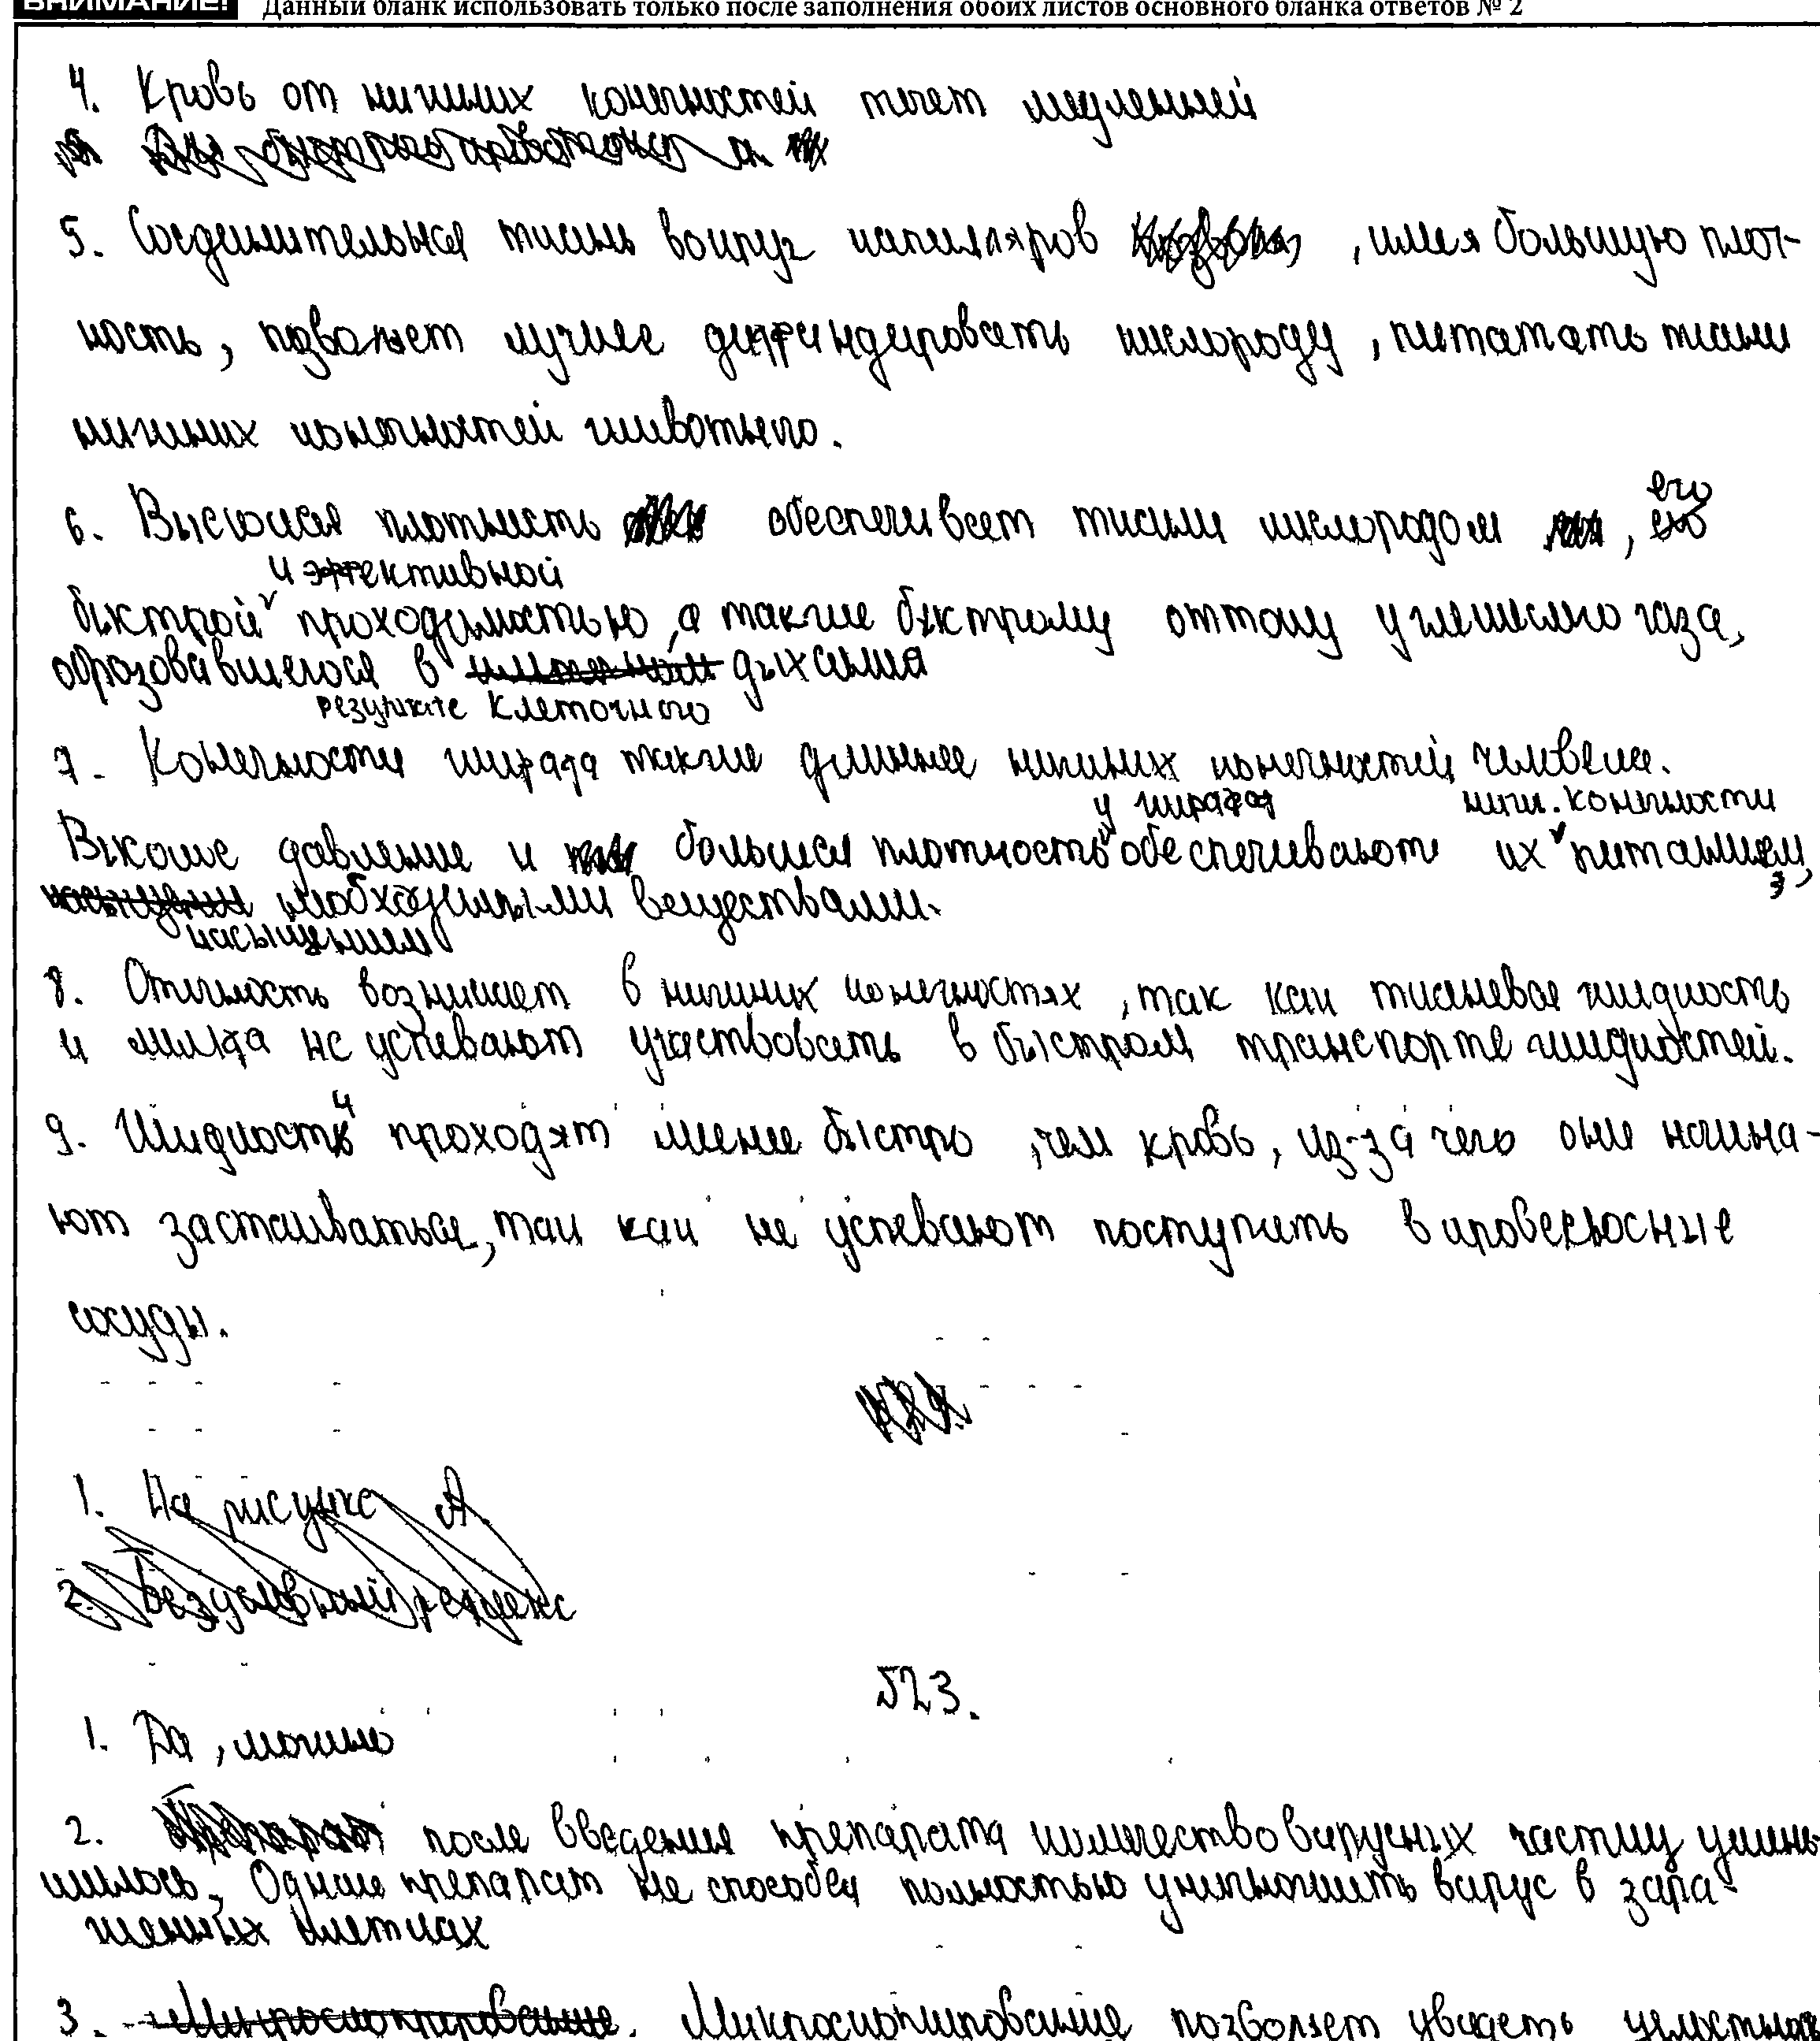 ВНИМАНИЕ! Данный бланк использовать только после заполнения обоих листов основного бланка ответов № 2
4. Кровь от нижних конечностей течет медленней
5. Соединительная ткань вокруг капилляров , имея большую плот-
ность, позволяет лучше кислороду, питать ткани
нижних конечностей животного.
6. Высокая плотность обеспечивает ткани кислородом , его
и эффективной
быстрой проходимостью, а также быстрому оттоку углекислого газа,
образовавшегося в дыхания
результате клеточного
7. Конечности жирафа также длиннее нижних конечностей человека.
у жирафа ниж. конечности
Высокое давление и большая плотность обеспечивают их питанием,
необходимыми веществами.
насыщением
8. Отечность возникает в нижних конечностях, так как тканевая жидкость
и лимфа не успевают участвовать в быстром транспорте жидкостей.
9. Жидкости проходят менее быстро, чем кровь, из-за чего они начина-
ют застаиваться, так как не успевают поступить в кровеносные
сосуды.
1. На рисунке А.
2. Безусловный рефлекс
№23.
1. Да, можно
2. после введения препарата количество вирусных частиц умень-
шилось. Однако препарат не способен полностью уничтожить вирус в зара-
женных клетках
3. Микроскопирование. Микроскопирование позволяет увидеть